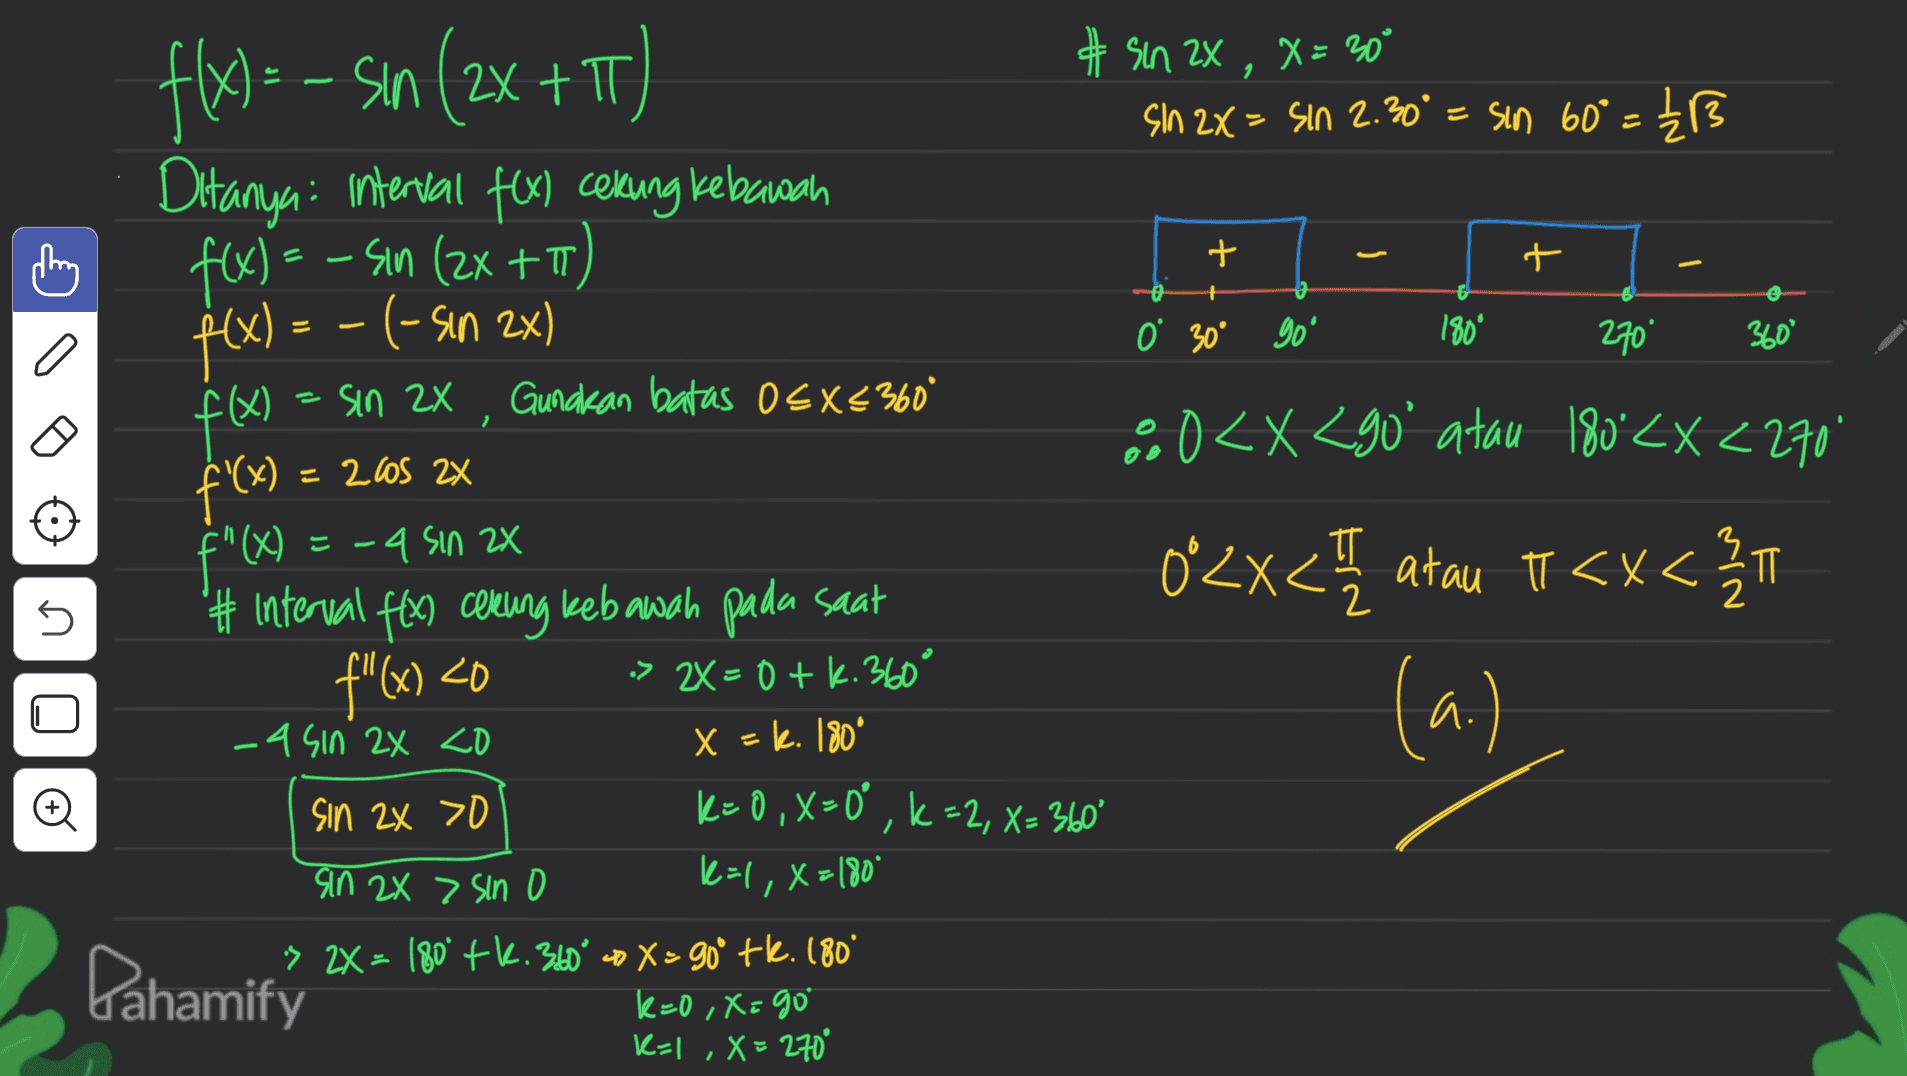 f(x) = - sin (2x + π)
Ditanya: interval f(x) cekung kebawah
f(x) = - sin (2x + π)
f(x) = - (- sin 2x)
f(x) = sin 2x , Gunakan batas 0 ≤ x ≤ 360°
f'(x) = 2 cos 2x
f"(x) = -4 sin 2x
# Interval f(x) cekung kebawah pada saat
f"(x) < 0
-4 sin 2x < 0
sin 2x > 0
sin 2x > sin 0
:> 2x = 0 + k.360°
x = k. 180°
k=0, x=0°, k=2, x=360°
k=1, x=180°
:> 2x = 180° + k.360° → x = 90° + k.180°
k=0, x=90°
k=1, x=270°
# sin 2x , x = 30°
sin 2x = sin 2.30° = sin 60° = ½√3
+ - + -
0° 30° 90° 180° 270° 360°
∴ 0 < x < 90° atau 180° < x < 270°
0° < x < π/2 atau π < x < 3/2 π
(a.)
Pahamify